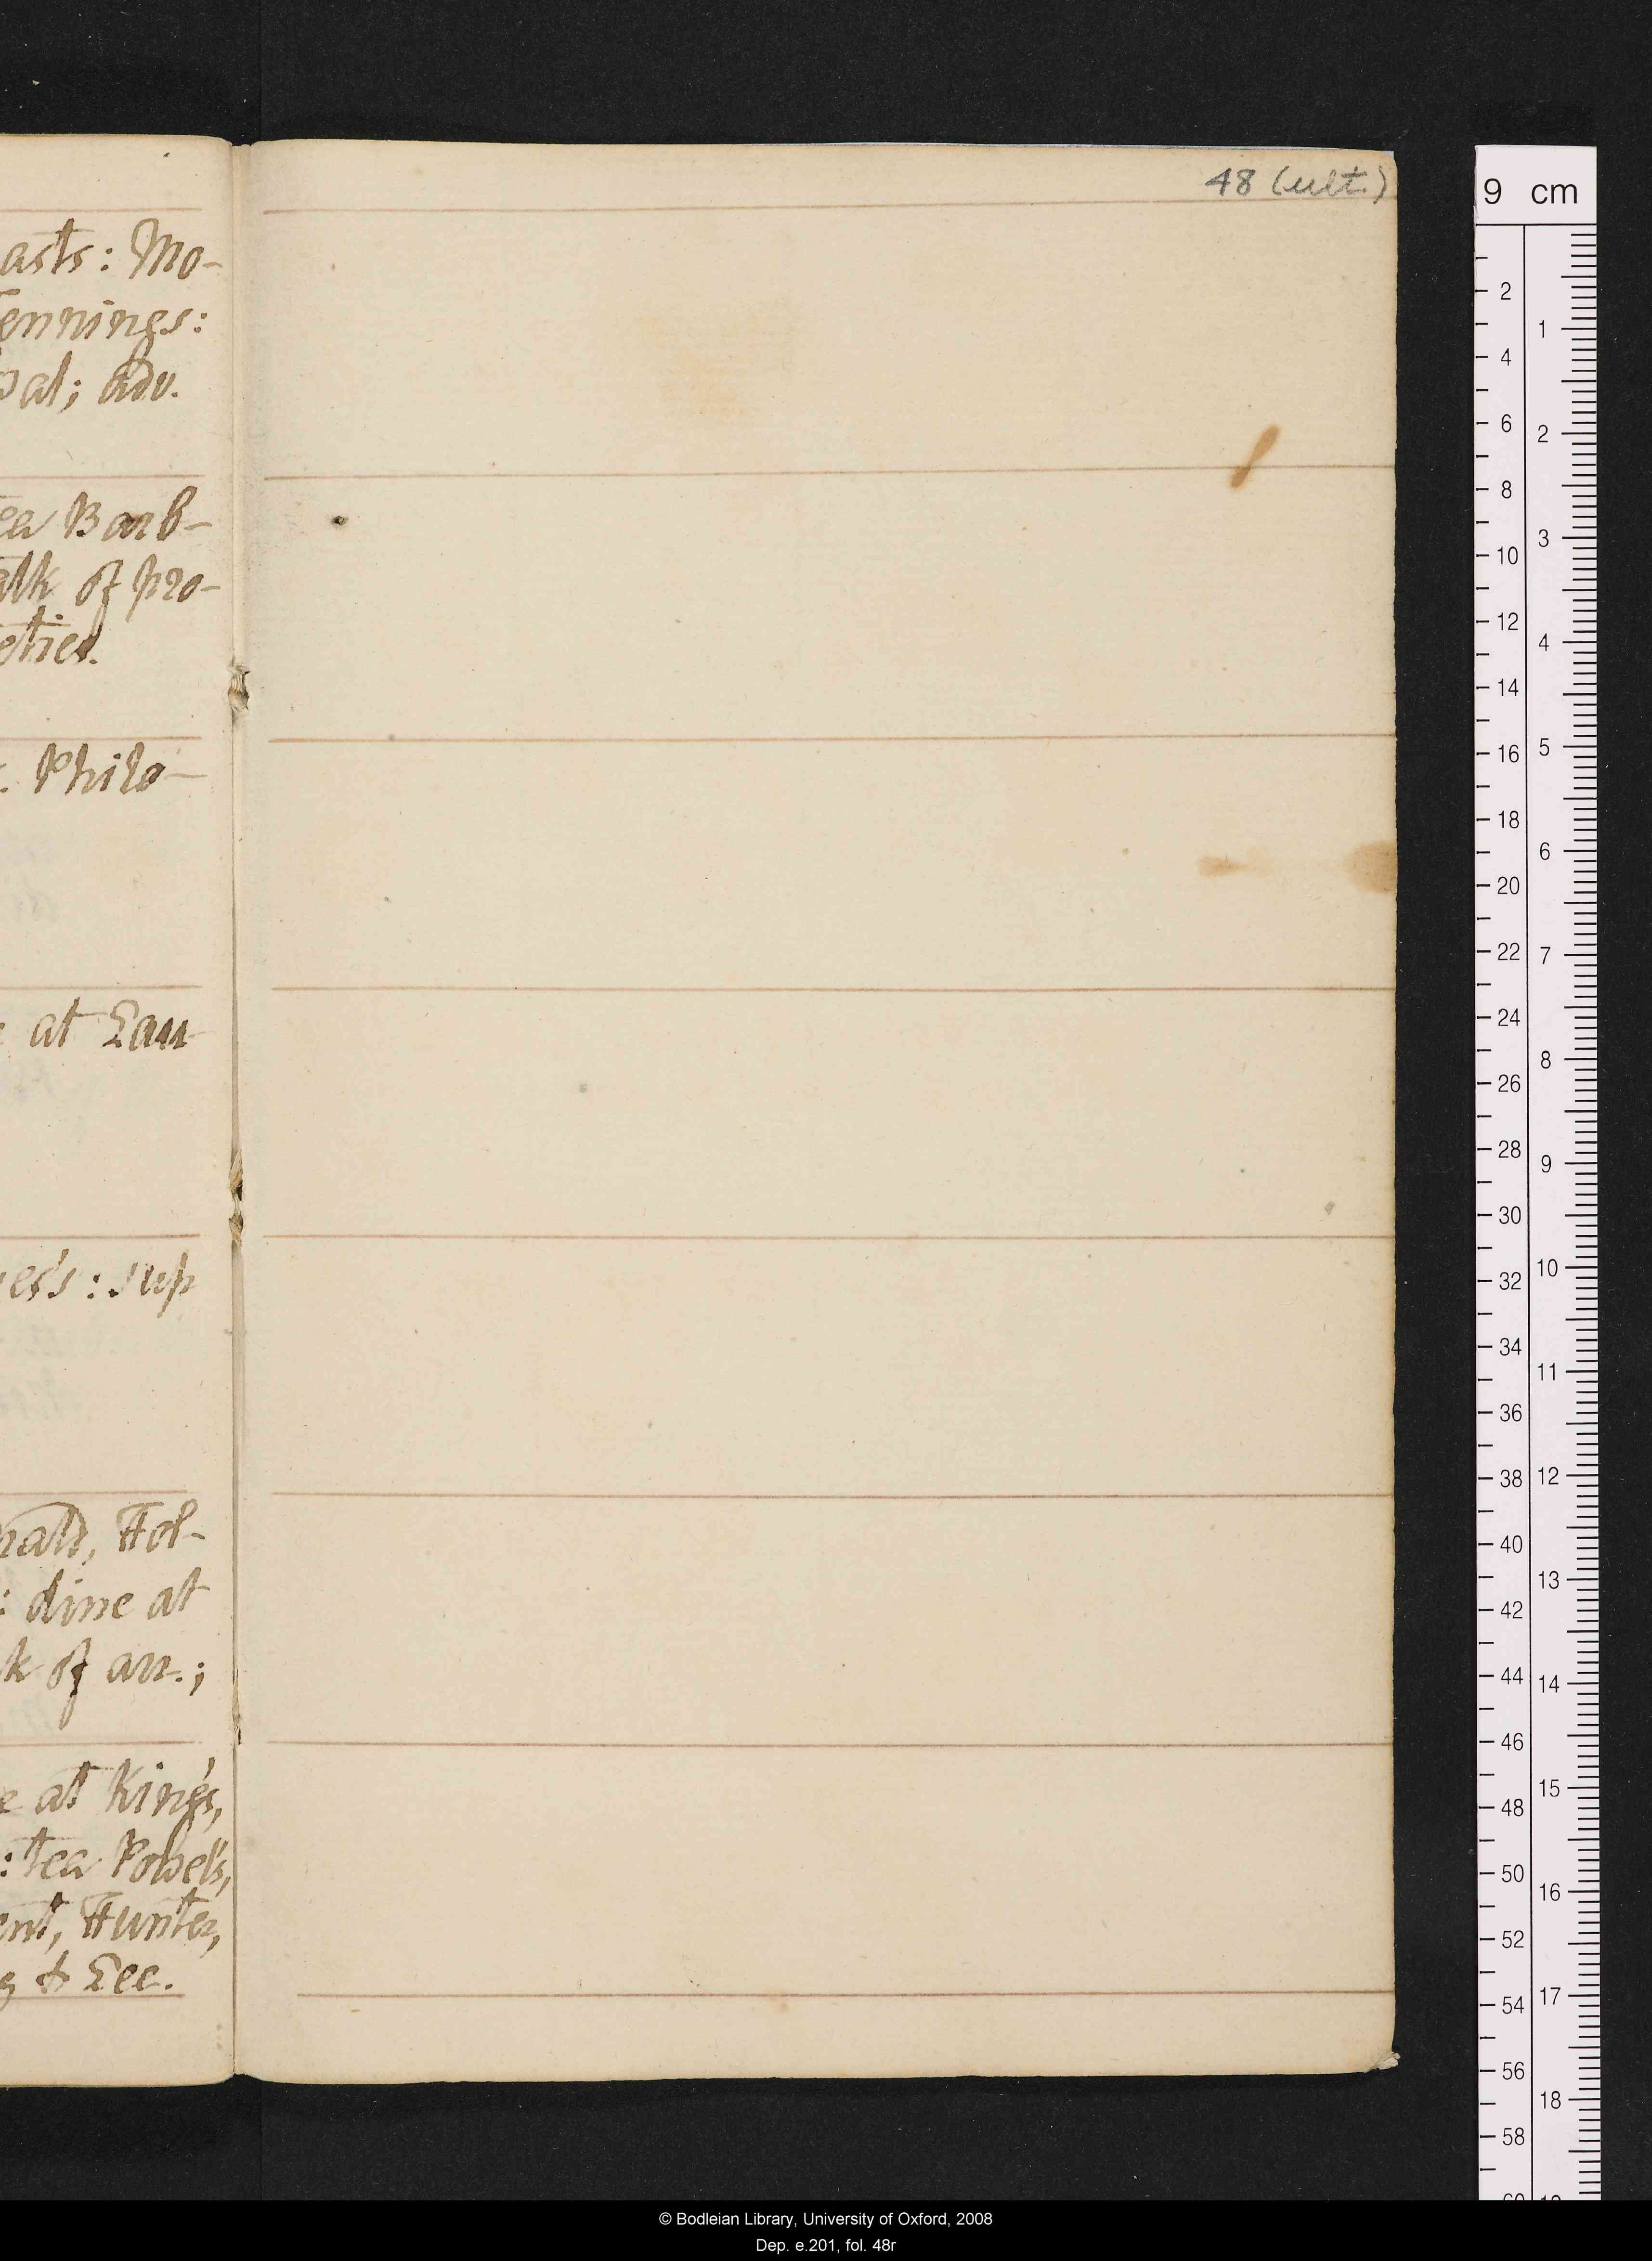 48 (ult.)
asts: Mo-
ennings:
pal; adv.
ea Barb-
alk of pro-
eties.
. Philo-
at Lau-
es's: sup
nald, Hol-
: dine at
k of an.;
e at King's,
: tea Powel's,
ent, Hunter,
g & Lee.
9 cm
2
4
6
8
10
12
14
16
18
20
22
24
26
28
30
32
34
36
38
40
42
44
46
48
50
52
54
56
58
1
2
3
4
5
6
7
8
9
10
11
12
13
14
15
16
17
18
© Bodleian Library, University of Oxford, 2008
Dep. e.201, fol. 48r